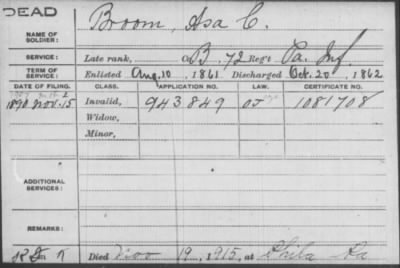 DEAD
NAME OF SOLDIER: Broom, Asa C.
SERVICE: Late rank, Co B, 72 Reg't Pa. Inf
TERM OF SERVICE: Enlisted Aug. 10, 1861 Discharged Oct. 20, 1862
DATE OF FILING. CLASS. APPLICATION NO. LAW. CERTIFICATE NO.
1890 Nov. 15 Invalid, 943849 1081708
Widow,
Minor,
ADDITIONAL SERVICES:
REMARKS:
Died Nov 19, 1915, at Phila Pa